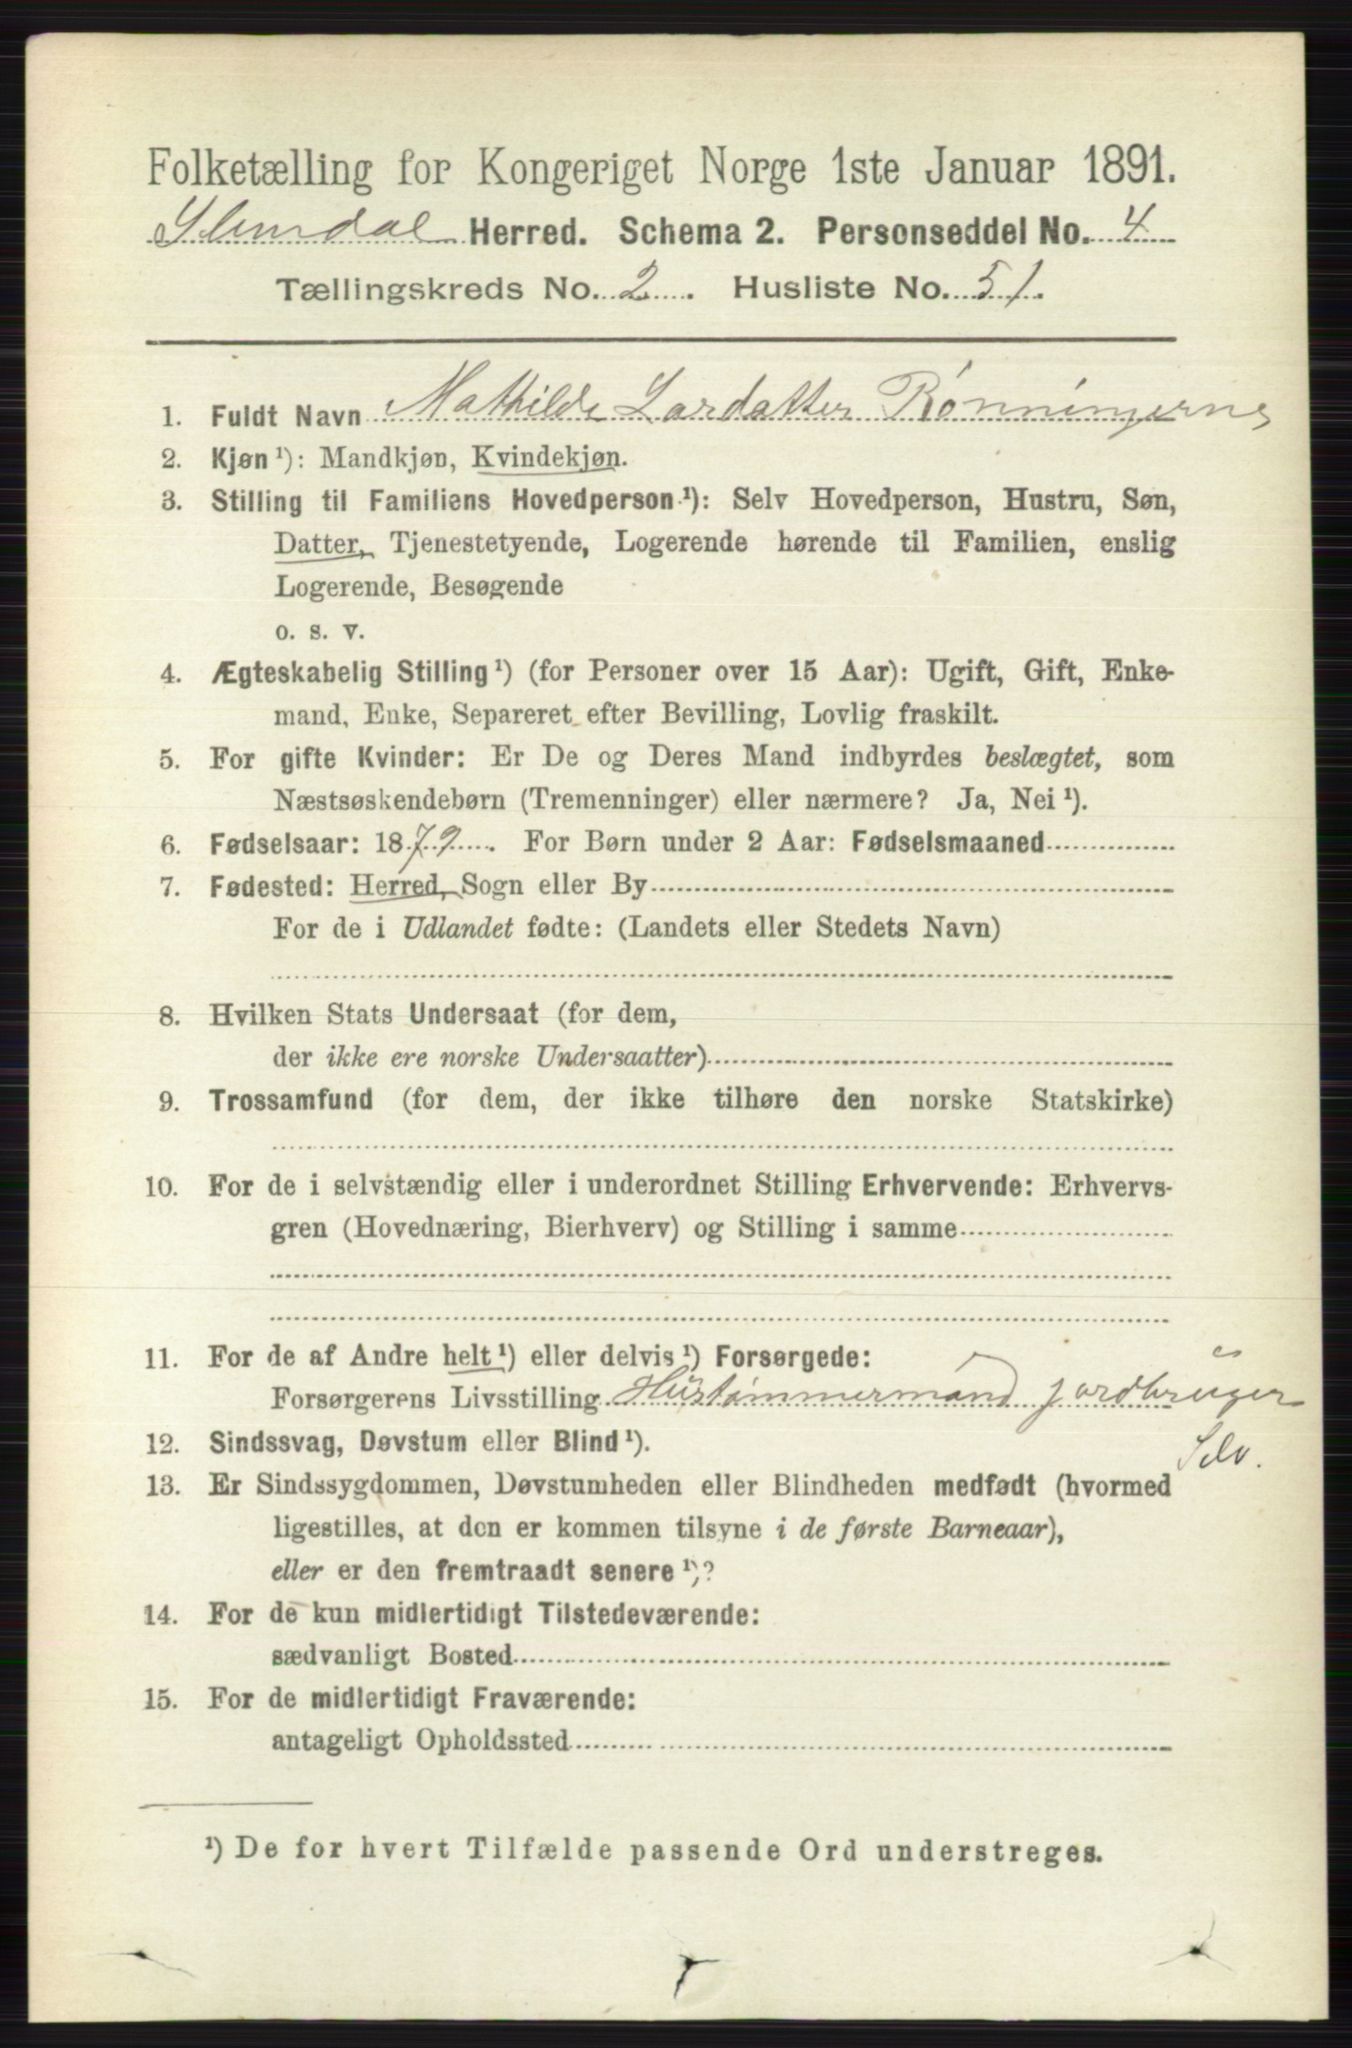 Folketælling for Kongeriget Norge 1ste Januar 1891.
Slemdal Herred. Schema 2. Personseddel No. 4
Tællingskreds No. 2. Husliste No. 51.
1. Fuldt Navn Mathilde Larsdatter Rønningerne
2. Kjøn ¹): Mandkjøn, Kvindekjøn.
3. Stilling til Familiens Hovedperson ¹): Selv Hovedperson, Hustru, Søn,
Datter, Tjenestetyende, Logerende hørende til Familien, enslig
Logerende, Besøgende
o. s. v.
4. Ægteskabelig Stilling ¹) (for Personer over 15 Aar): Ugift, Gift, Enke-
mand, Enke, Separeret efter Bevilling, Lovlig fraskilt.
5. For gifte Kvinder: Er De og Deres Mand indbyrdes beslægtet, som
Næstsøskendebørn (Tremenninger) eller nærmere? Ja, Nei ¹).
6. Fødselsaar: 1879. For Børn under 2 Aar: Fødselsmaaned
7. Fødested: Herred, Sogn eller By
For de i Udlandet fødte: (Landets eller Stedets Navn)
8. Hvilken Stats Undersaat (for dem,
der ikke ere norske Undersaatter)
9. Trossamfund (for dem, der ikke tilhøre den norske Statskirke)
10. For de i selvstændig eller i underordnet Stilling Erhvervende: Erhvervs-
gren (Hovednæring, Bierhverv) og Stilling i samme
11. For de af Andre helt ¹) eller delvis ¹) Forsørgede:
Forsørgerens Livsstilling Hustømmermand jordbruger
12. Sindssvag, Døvstum eller Blind ¹). Selv.
13. Er Sindssygdommen, Døvstumheden eller Blindheden medfødt (hvormed
ligestilles, at den er kommen tilsyne i de første Barneaar),
eller er den fremtraadt senere ¹)?
14. For de kun midlertidigt Tilstedeværende:
sædvanligt Bosted
15. For de midlertidigt Fraværende:
antageligt Opholdssted
¹) De for hvert Tilfælde passende Ord understreges.